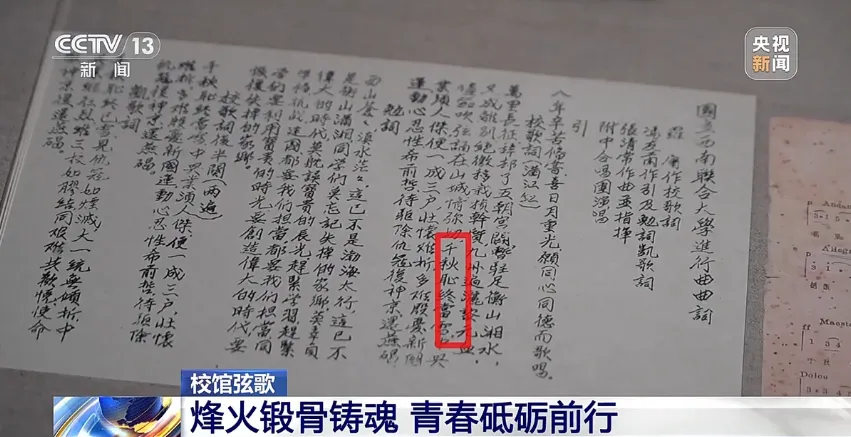 CCTV 13
新闻
央视
新闻
國立西南聯合大學進行曲曲詞
羅庸作校歌詞
馮友蘭作引及勉詞凱歌詞
張清常作曲並指揮
附中合唱團演唱
引
八年辛苦備嘗,喜日月重光,願同心同德而歌唱。
校歌詞(滿江紅)
萬里長征,辭卻了五朝宮闕,暫駐足衡山湘水,
又成離別,絕徼移栽楨幹質,九州遍灑黎元血,
儘笳吹弦誦在山城,情彌切,千秋恥,終當雪,中興
業須人傑,便一成三戶,壯懷難折,多難殷憂新國
運,動心忍性希前哲,待驅除仇寇復神京,還燕碣。
勉詞
西山蒼蒼,滇水茫茫,這已不是渤海太行,這已不
是衡山瀟湘,同學們,莫忘記失掉的家鄉,莫辜負
偉大的時代,莫耽誤寶貴的辰光,趕緊學習,趕緊
準備,抗戰建國都要我們擔當,都要我們擔當,同
學們,要利用寶貴的時光,要創造偉大的時代,要
恢復失掉的家鄉。
校歌詞後半闋(兩遍)
千秋恥,終當雪,中興業,須人傑,便一成三戶,壯懷
難折,多難殷憂新國運,動心忍性希前哲,待驅除
仇寇復神京,還燕碣。
凱歌詞
千秋恥,終已雪,見仇寇,如煙滅,大一統,無傾折,中
如膠結,同艱難,共歡悅,使命
神京復,還燕碣。
校馆弦歌
烽火锻骨铸魂 青春砥砺前行